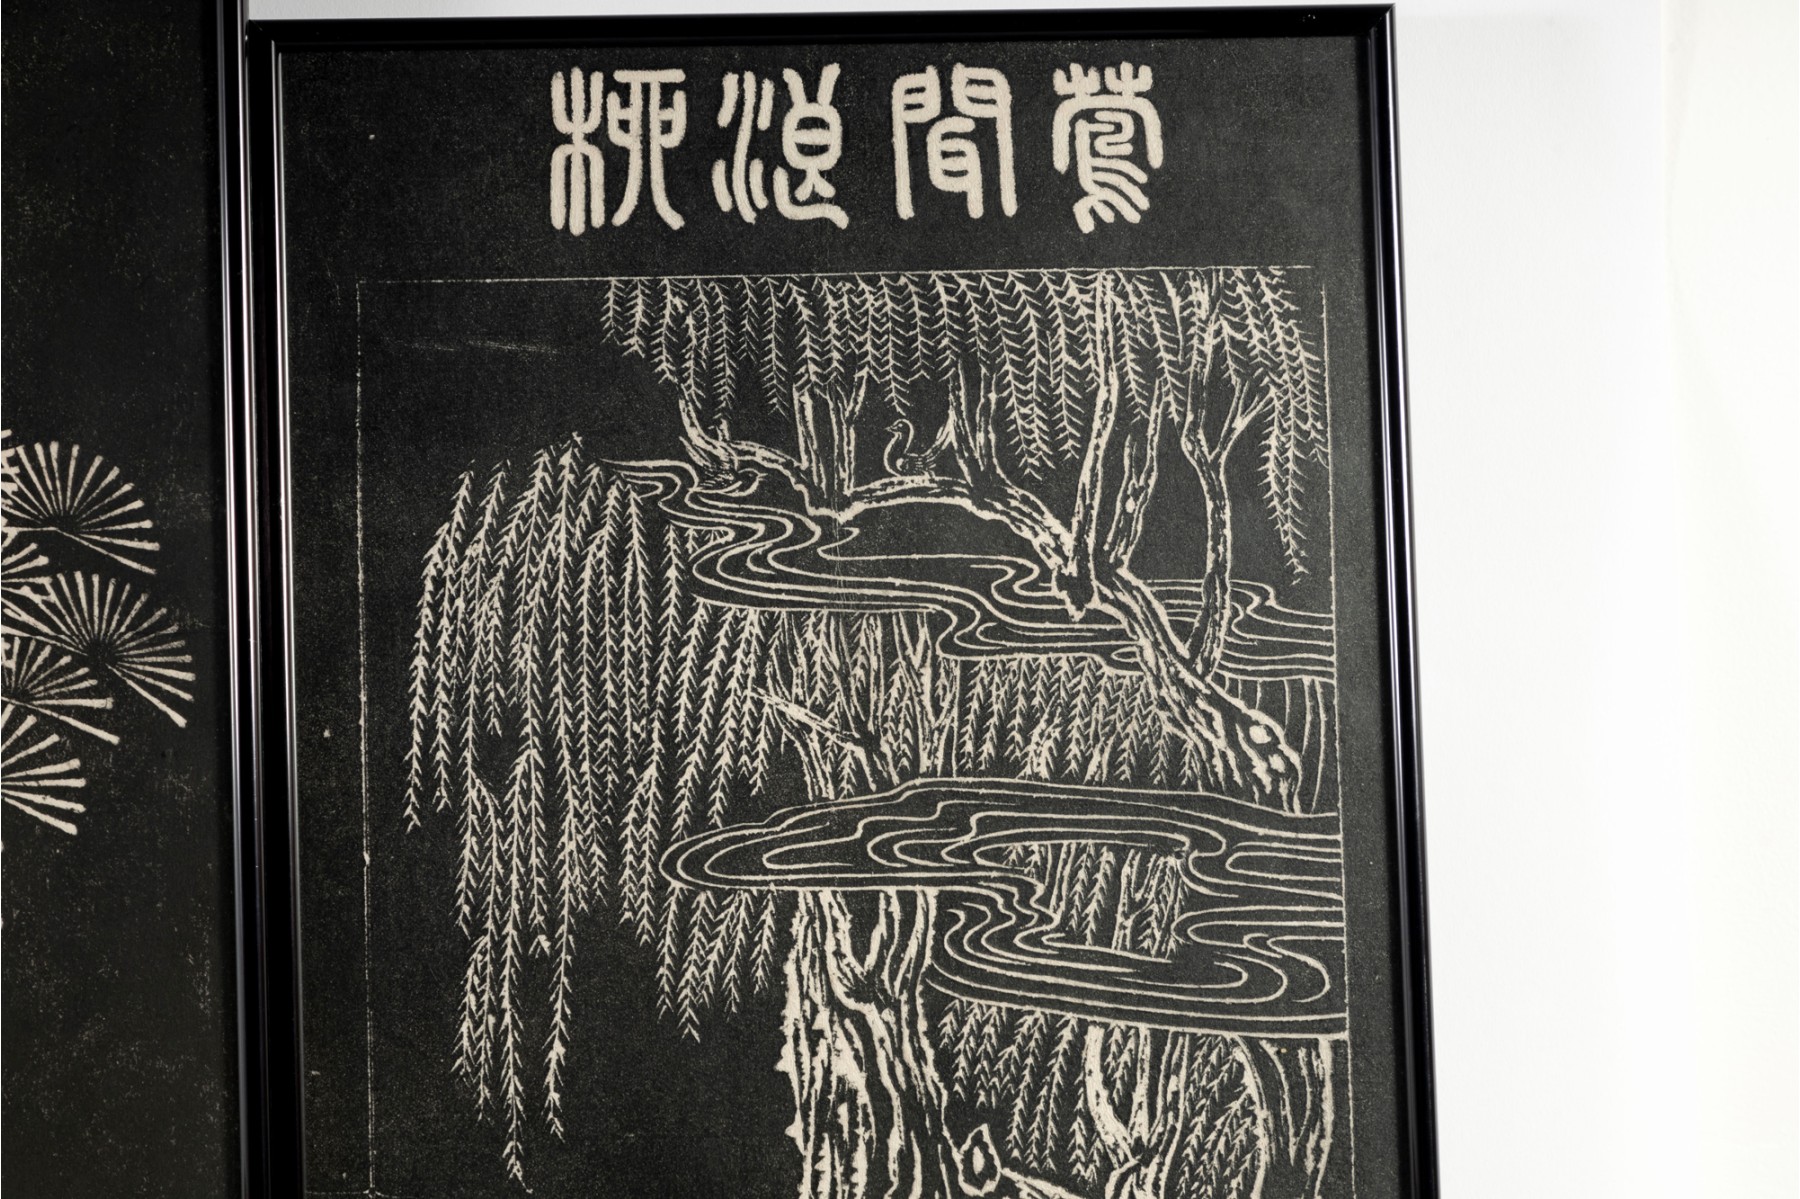 柳浪聞鶯